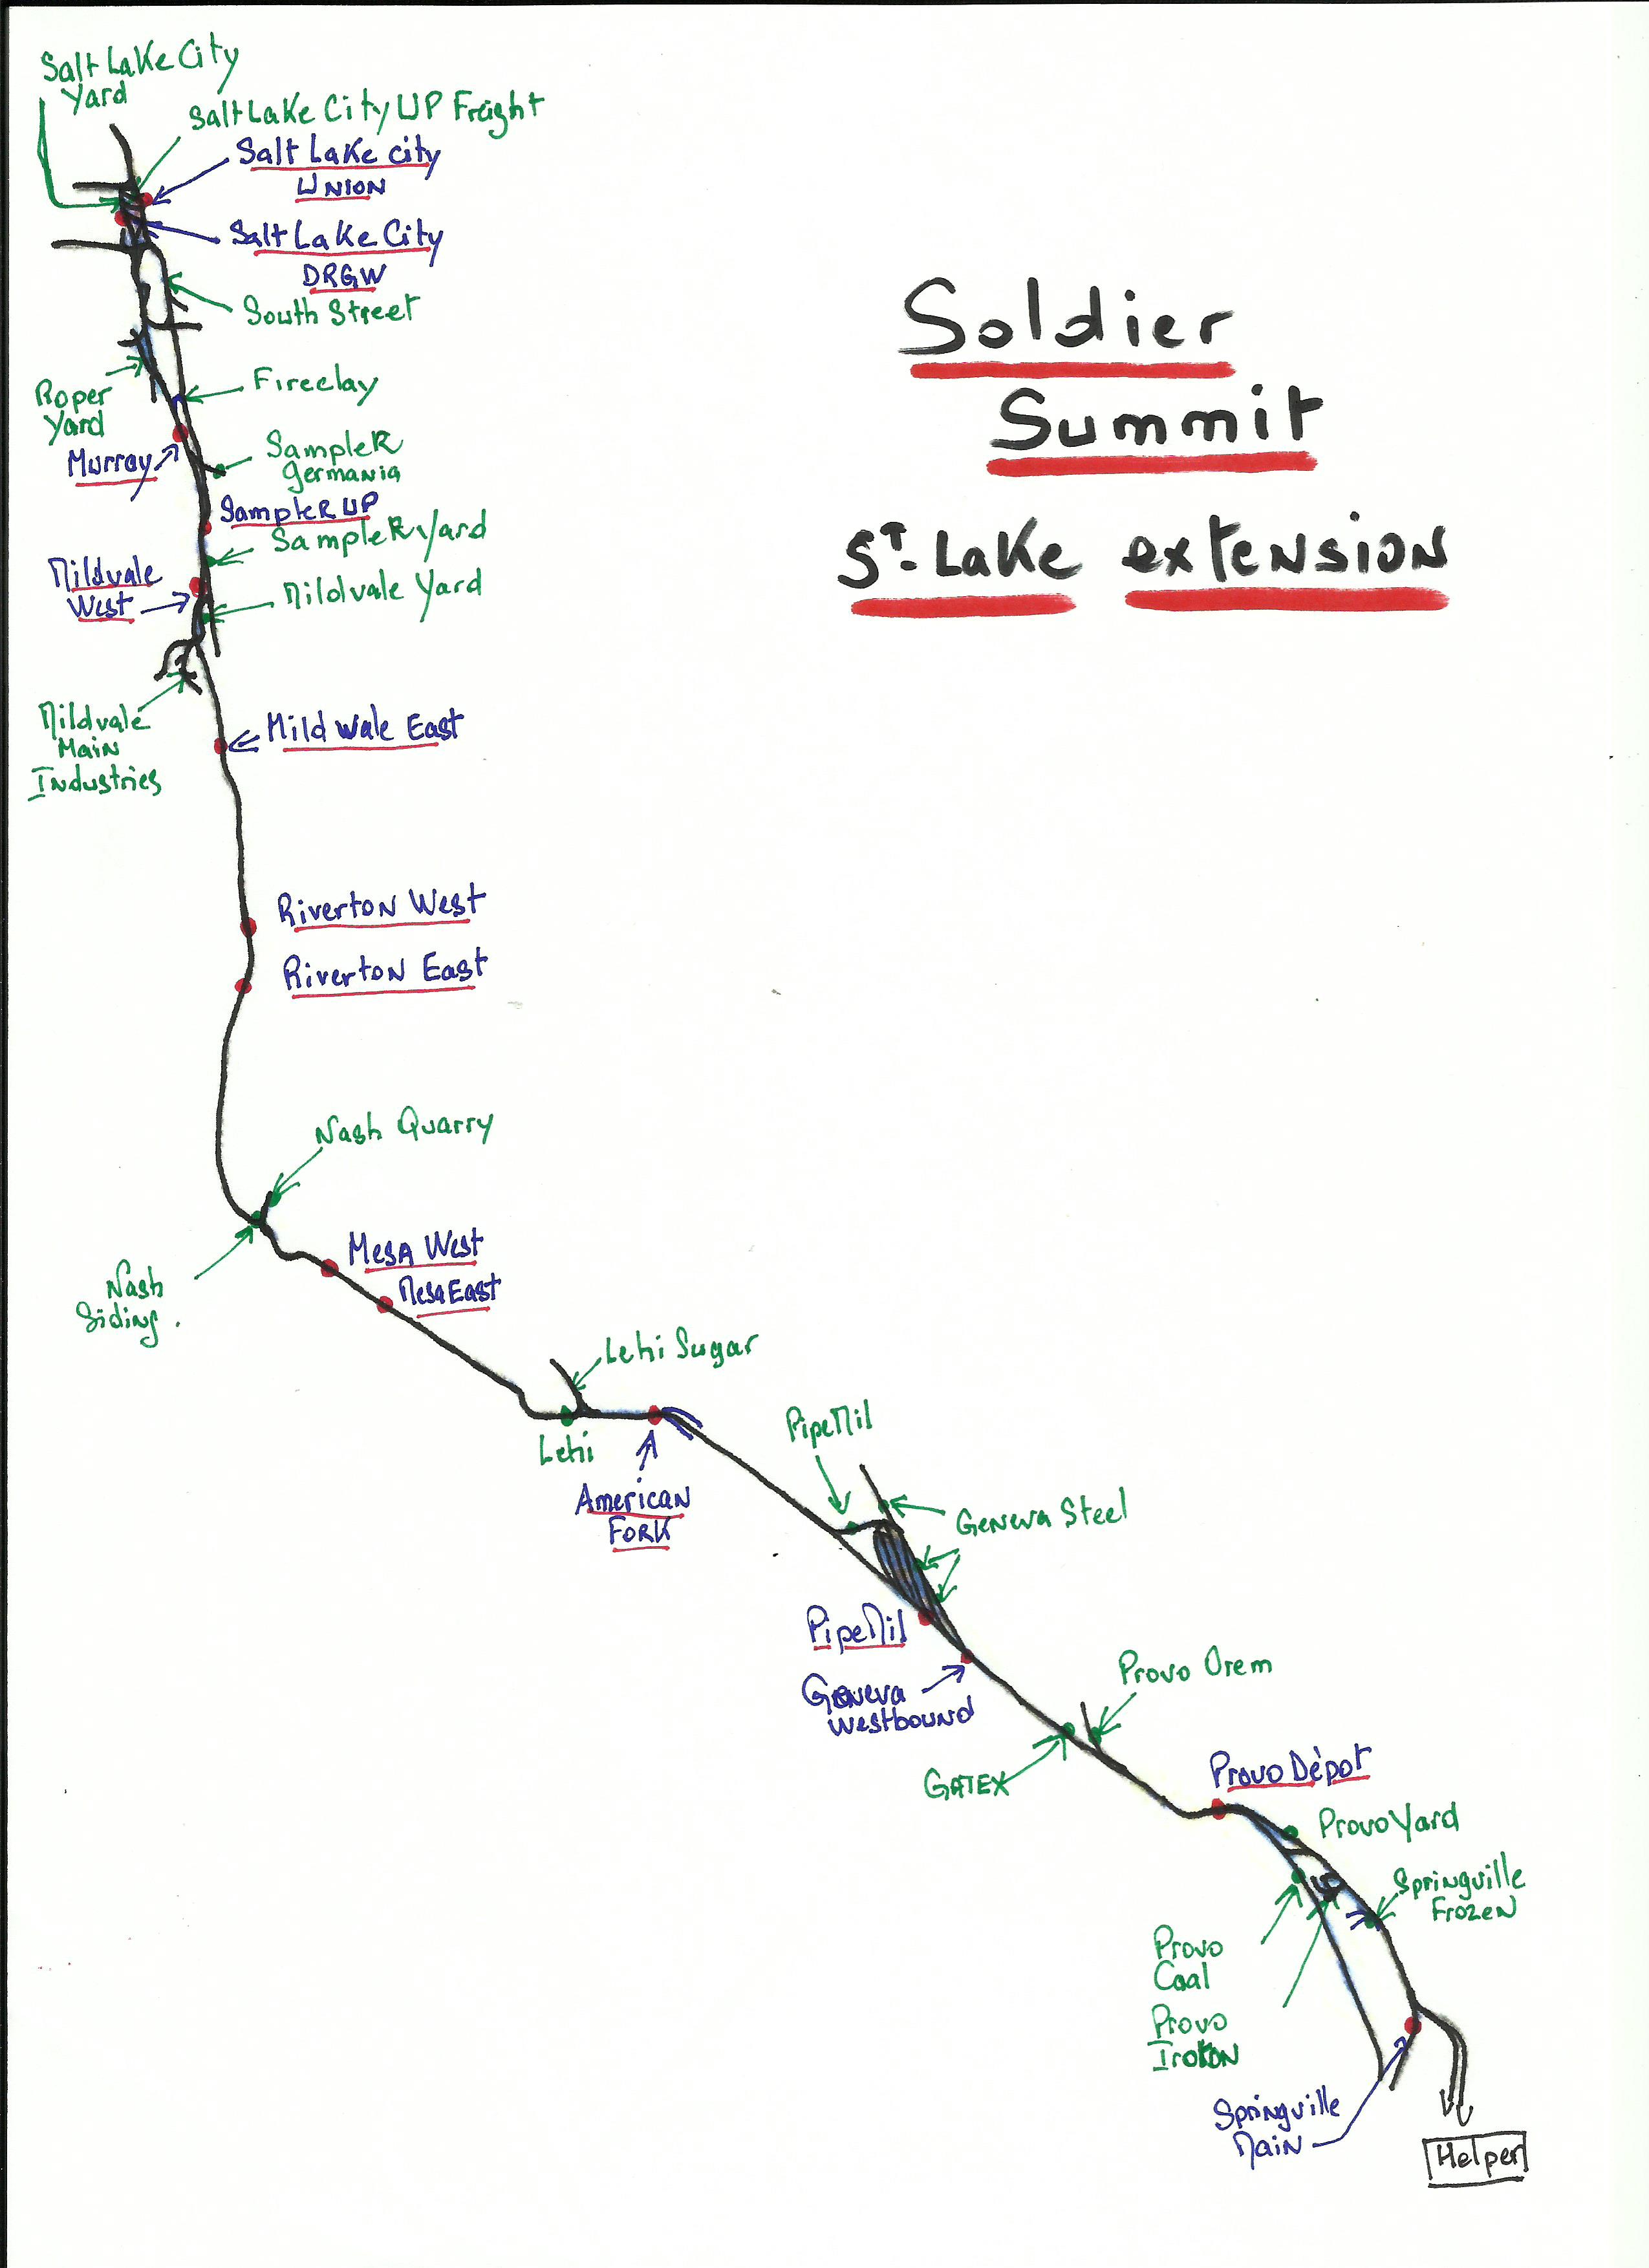 Salt Lake City
Yard
Salt Lake City UP Freight
Salt Lake city
UNION
Salt Lake City
DRGW
South Street
Soldier
Summit
St. Lake extension
Roper
Yard
Fireclay
Murray
SampleR
Germania
SampleR UP
SampleR Yard
Mildvale
West
Mildvale Yard
Mildvale
Main
Industries
Mild Wale East
Riverton West
Riverton East
Nash Quarry
Nash
Siding.
Mesa West
Mesa East
Lehi Sugar
Lehi
American
Fork
PipeMil
Geneva Steel
PipeMil
Geneva
Westbound
Provo Orem
GATEX
Provo Dépot
Provo Yard
Springville
Frozen
Provo
Coal
Provo
Springville
Main
Helper